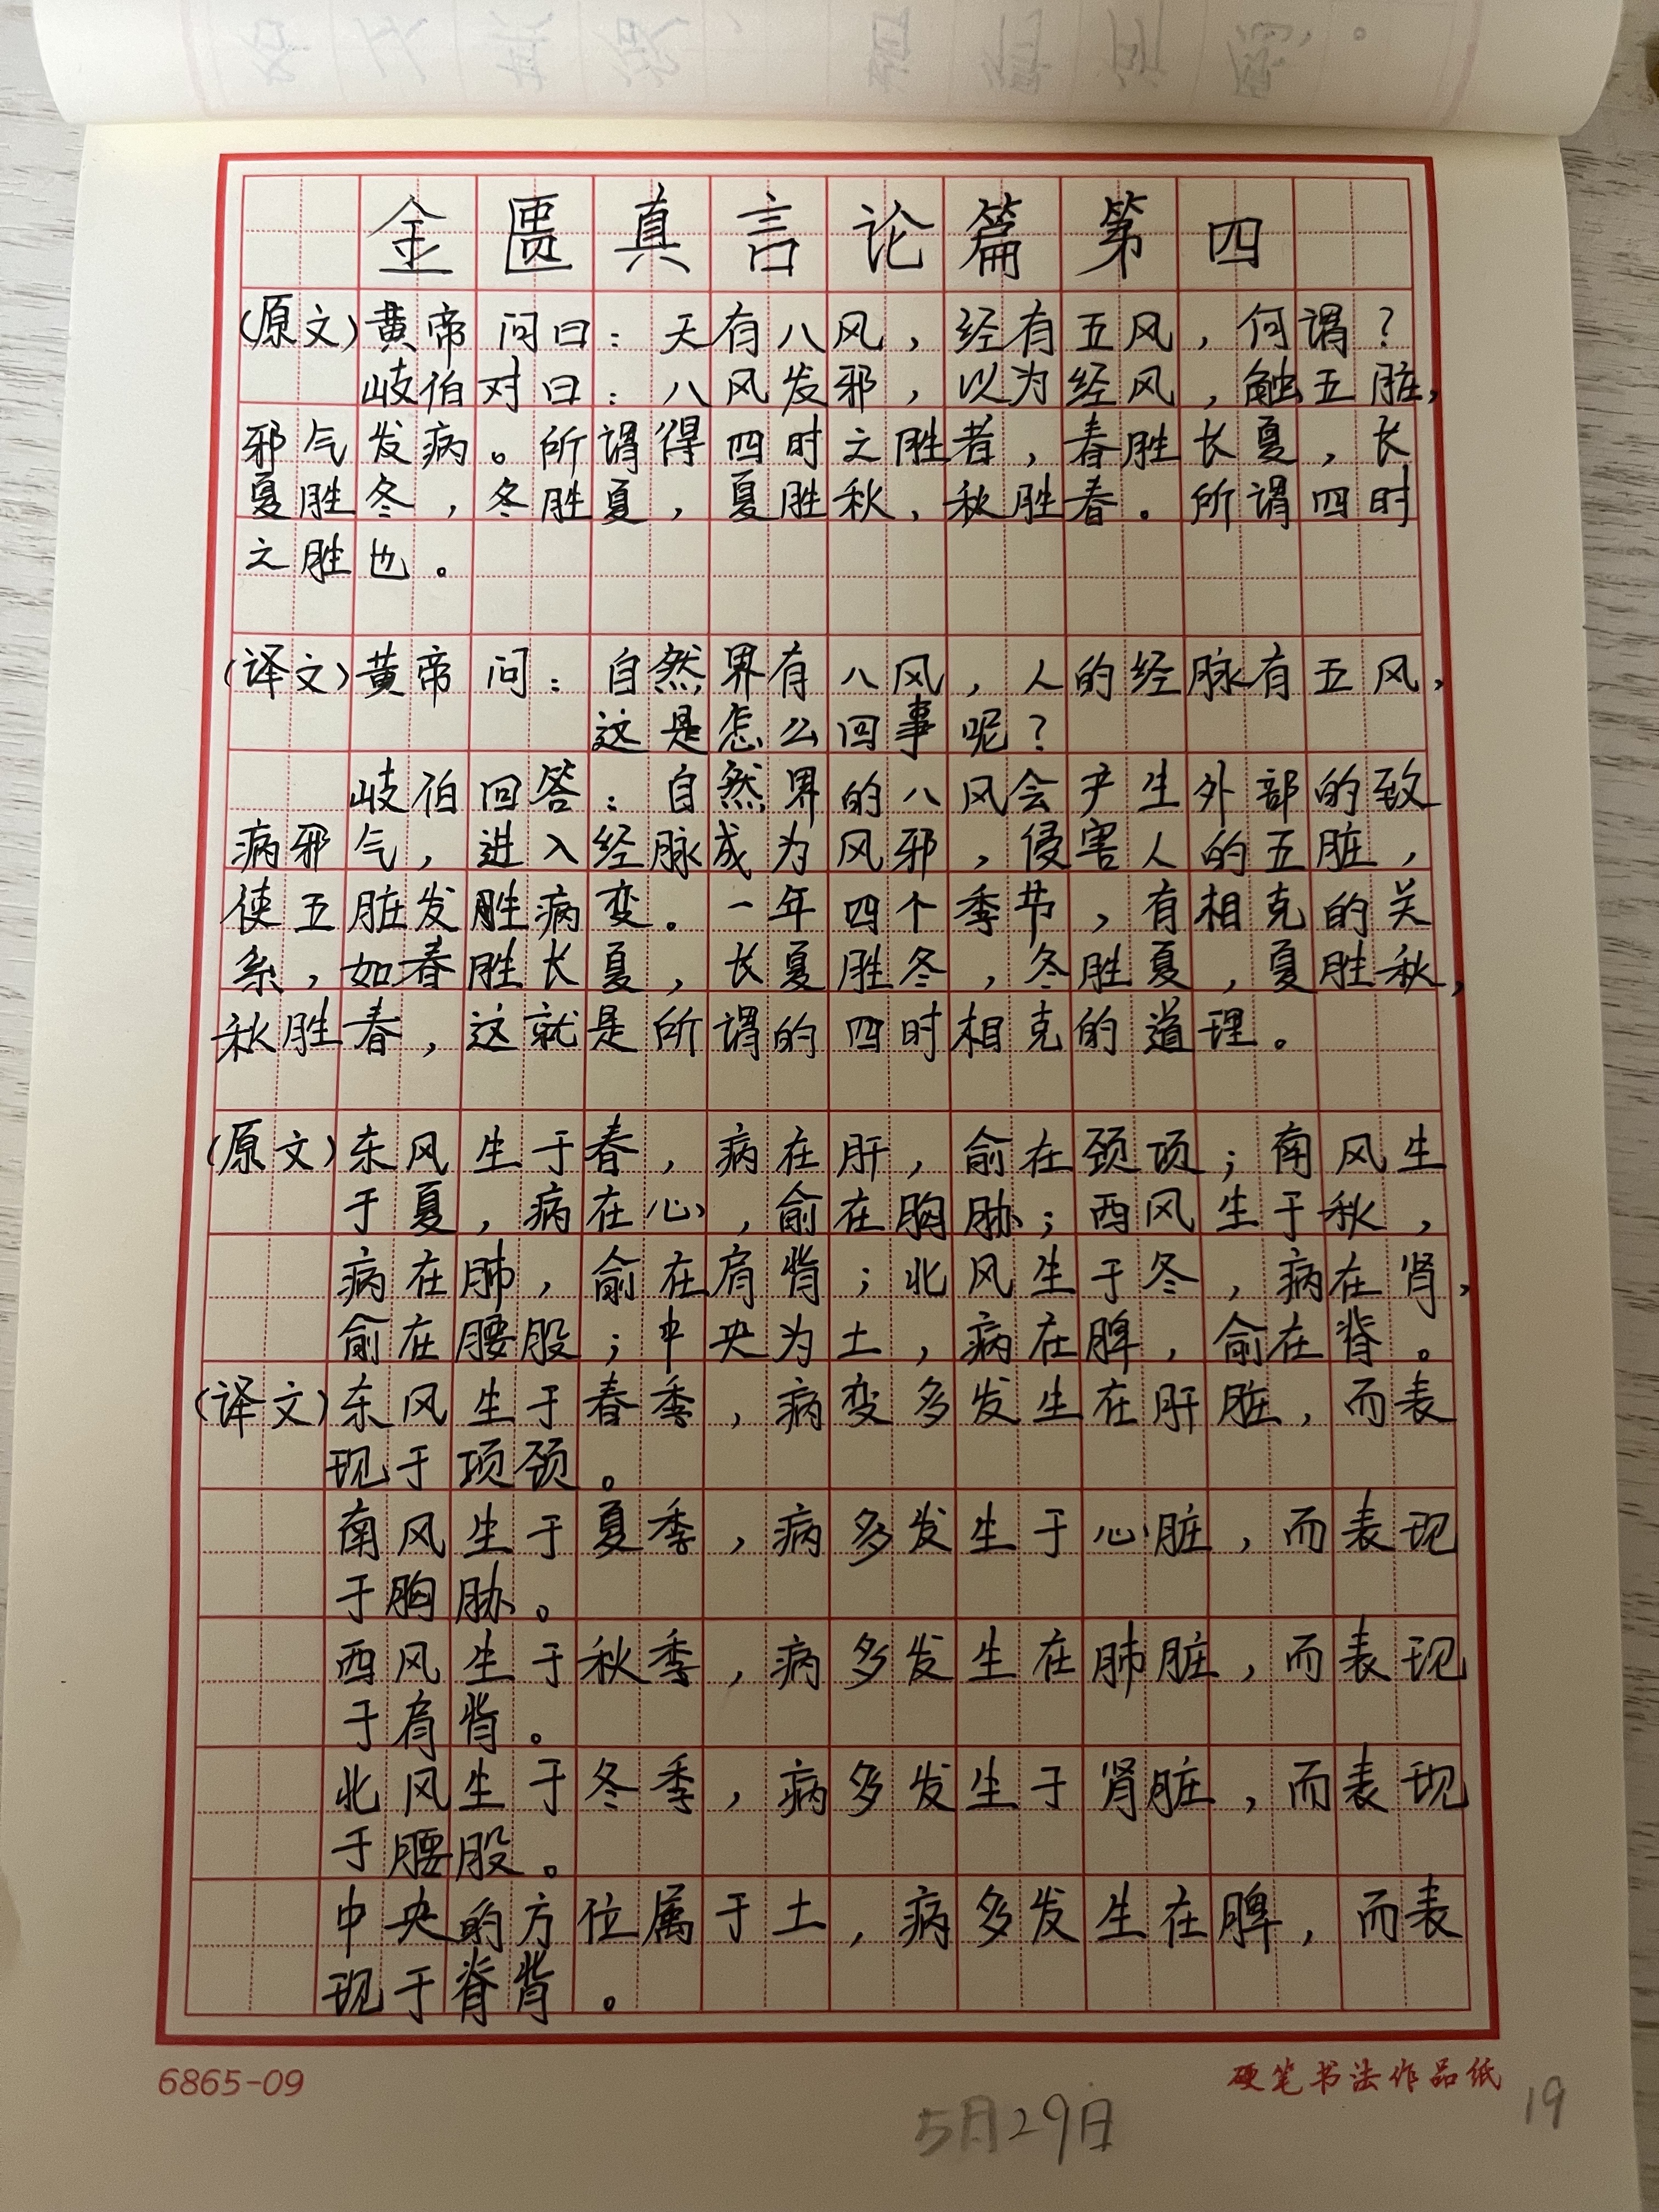 金匮真言论篇第四
(原文)黄帝问曰：天有八风，经有五风，何谓？
岐伯对曰：八风发邪，以为经风，触五脏，
邪气发病。所谓得四时之胜者，春胜长夏，长
夏胜冬，冬胜夏，夏胜秋，秋胜春。所谓四时
之胜也。
(译文)黄帝问：自然界有八风，人的经脉有五风，
这是怎么回事呢？
岐伯回答：自然界的八风会产生外部的致
病邪气，进入经脉成为风邪，侵害人的五脏，
使五脏发胜病变。一年四个季节，有相克的关
系，如春胜长夏，长夏胜冬，冬胜夏，夏胜秋，
秋胜春，这就是所谓的四时相克的道理。
(原文)东风生于春，病在肝，俞在颈项；南风生
于夏，病在心，俞在胸胁；西风生于秋，
病在肺，俞在肩背；北风生于冬，病在肾，
俞在腰股；中央为土，病在脾，俞在脊。
(译文)东风生于春季，病变多发生在肝脏，而表
现于项颈。
南风生于夏季，病多发生于心脏，而表现
于胸胁。
西风生于秋季，病多发生在肺脏，而表现
于肩背。
北风生于冬季，病多发生于肾脏，而表现
于腰股。
中央的方位属于土，病多发生在脾，而表
现于脊背。
6865-09
硬笔书法作品纸
5月29日
19